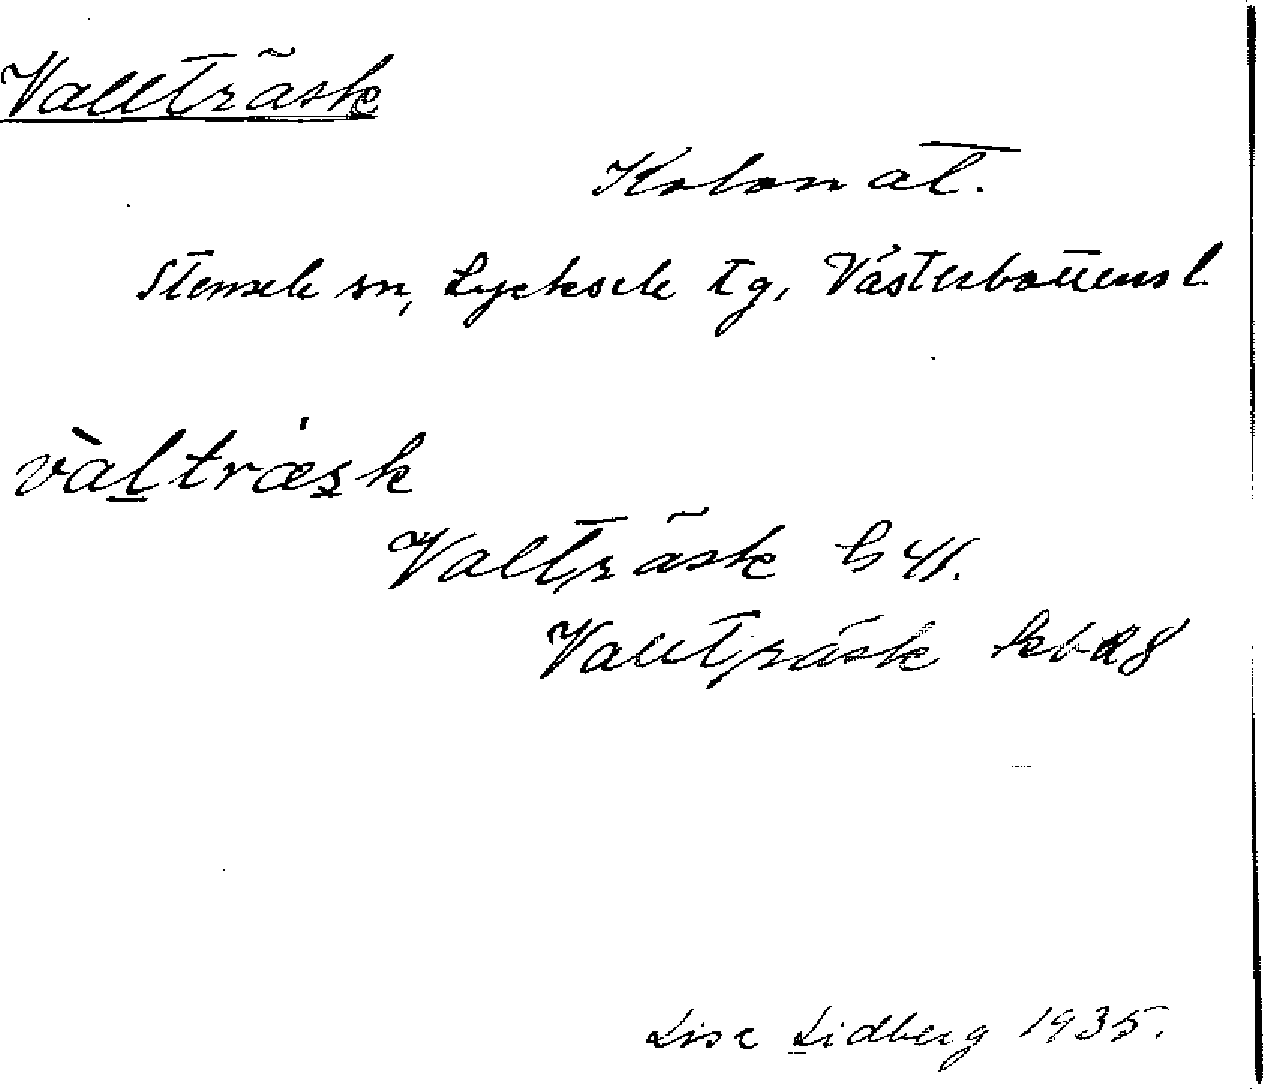 Vallträsk
Kolonat.
Stensele sn, Lycksele tg, Västerbottens l.
val̲træs̲k
Valträsk G 41.
Vallträsk Skb R8
Lisa Lidberg 1935.